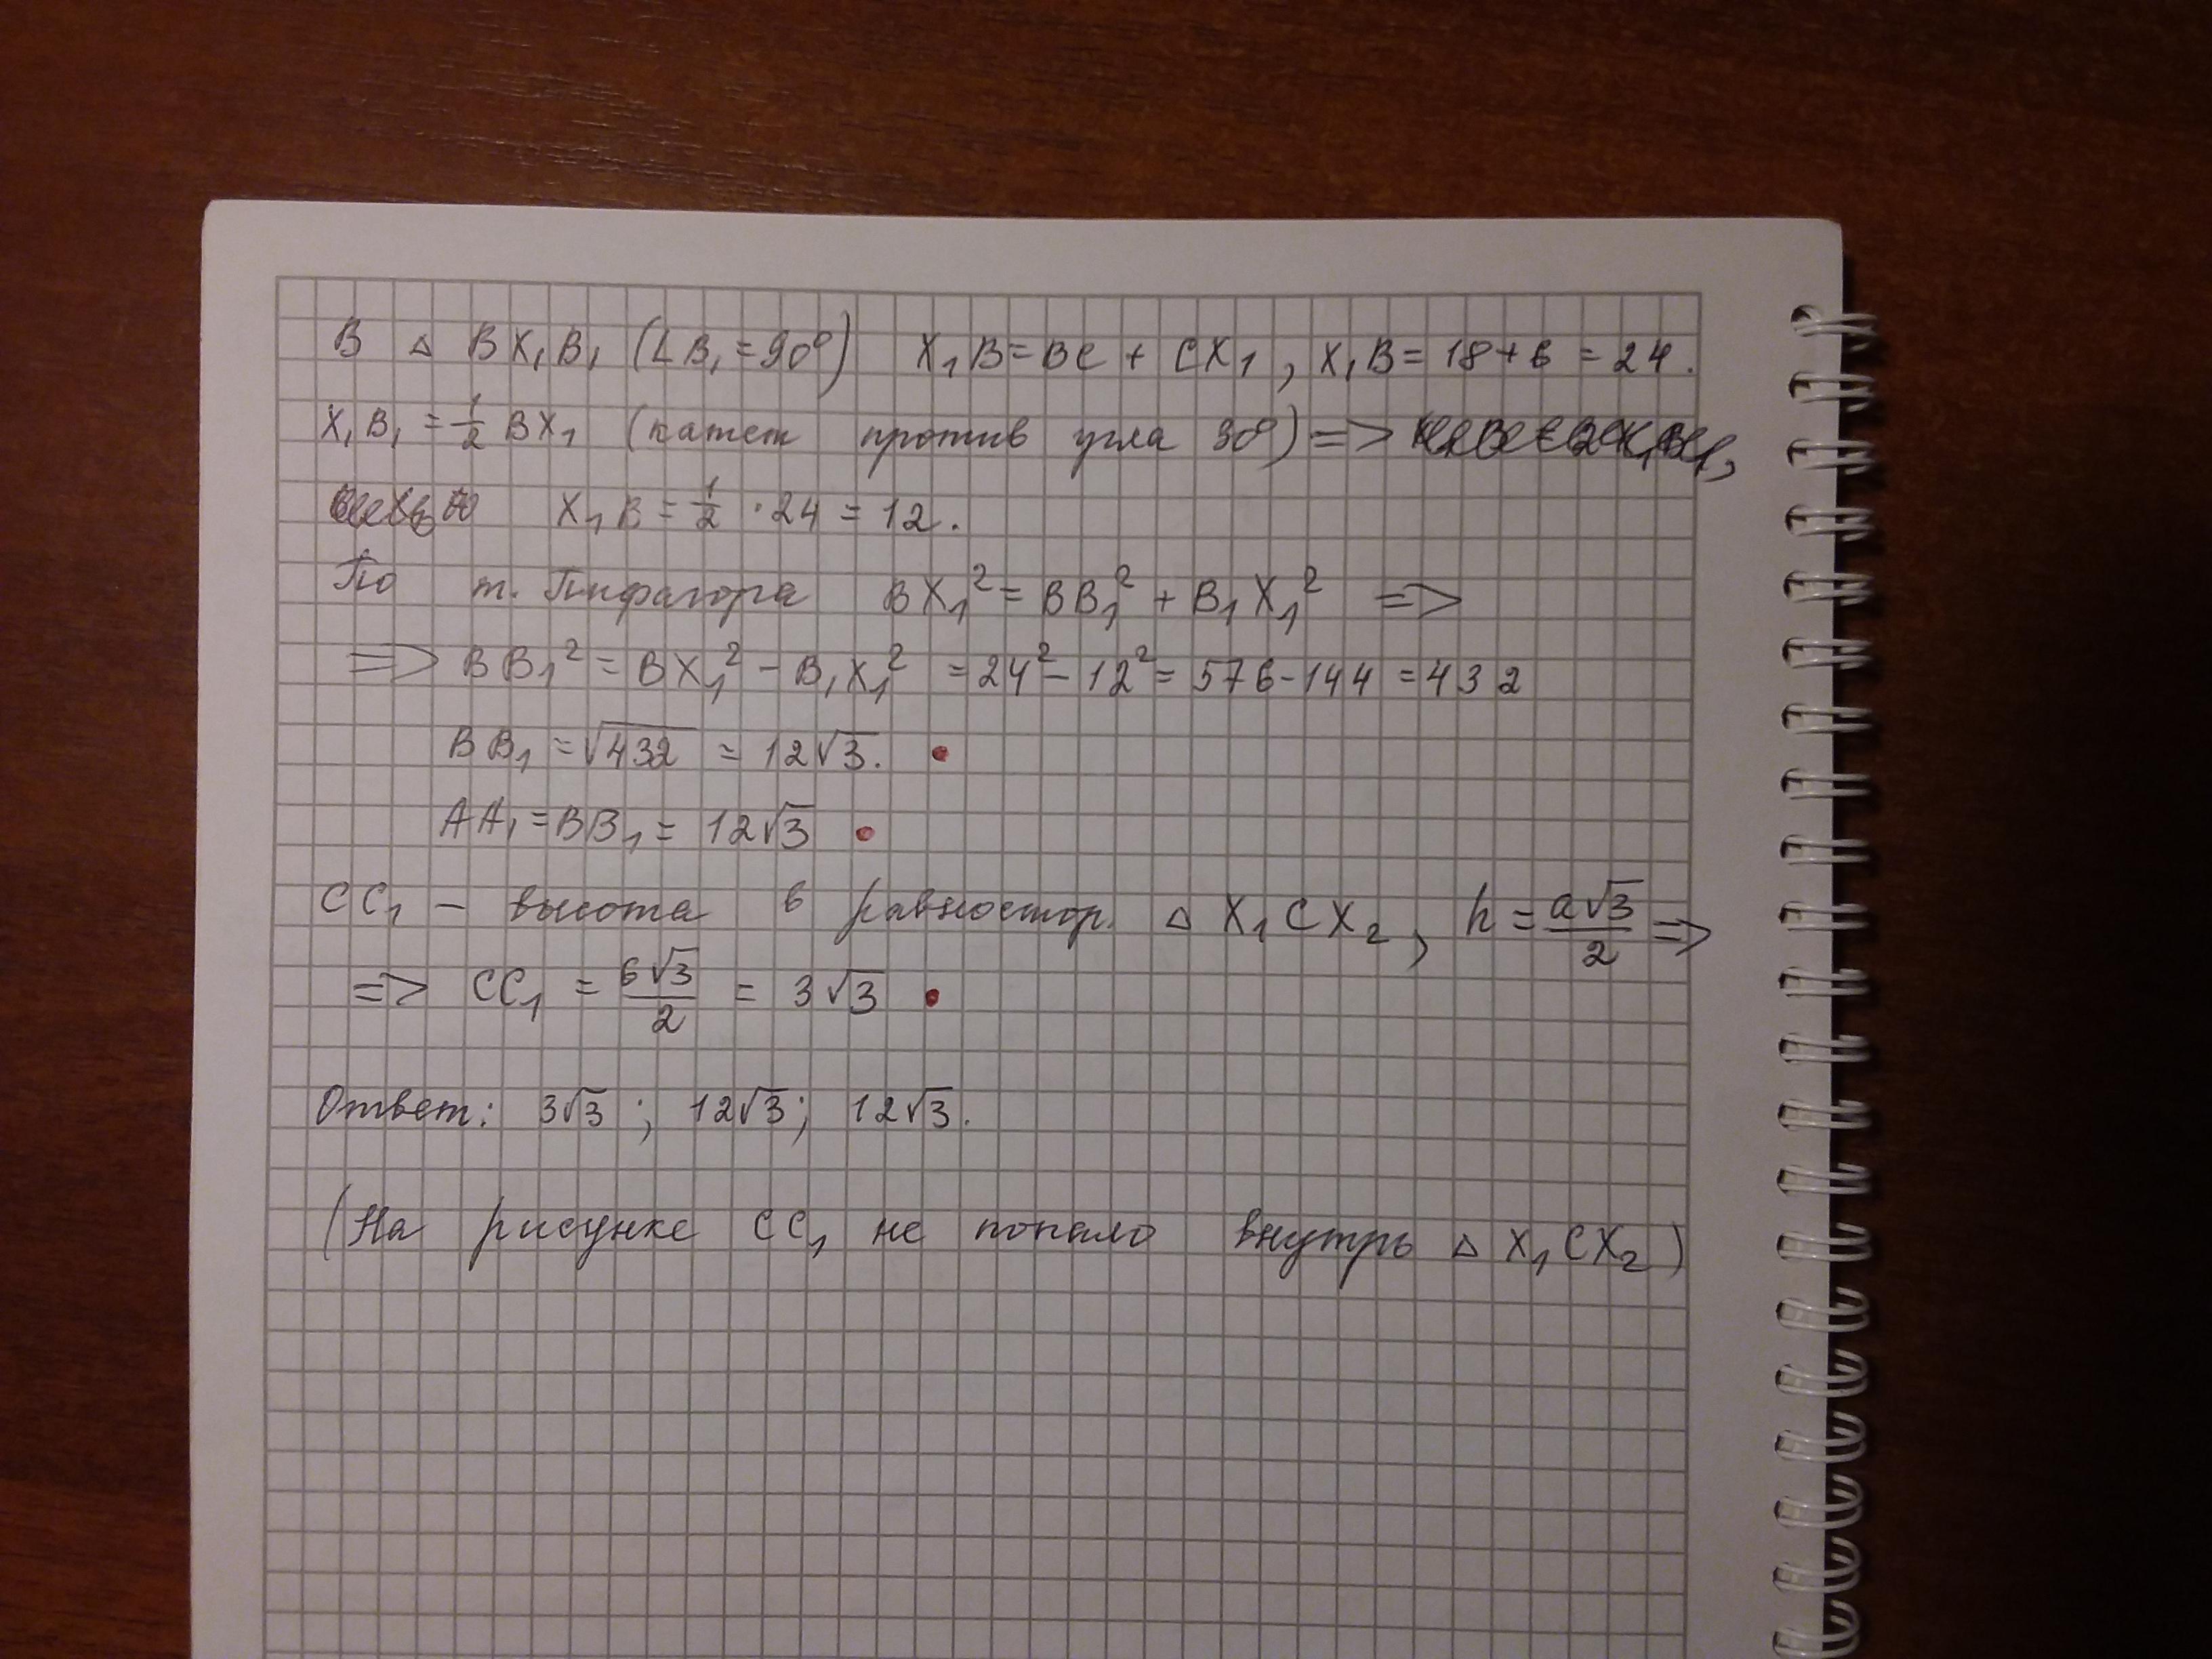 В △ BX₁B₁ (∠B₁=90°) X₁B=BC + CX₁, X₁B= 18+6 = 24.
X₁B₁ = 1/2 BX₁ (катет против угла 30°) =>
X₁B = 1/2 · 24 = 12.
По т. Пифагора BX₁² = BB₁² + B₁X₁² =>
=> BB₁² = BX₁² - B₁X₁² = 24² - 12² = 576-144 = 432
BB₁ = √432 = 12√3.
AA₁ = BB₁ = 12√3
CC₁ - высота в равностор. △ X₁CX₂, h = a√3/2 =>
=> CC₁ = 6√3/2 = 3√3
Ответ: 3√3 ; 12√3; 12√3.
(На рисунке CC₁ не попало внутрь △ X₁CX₂)